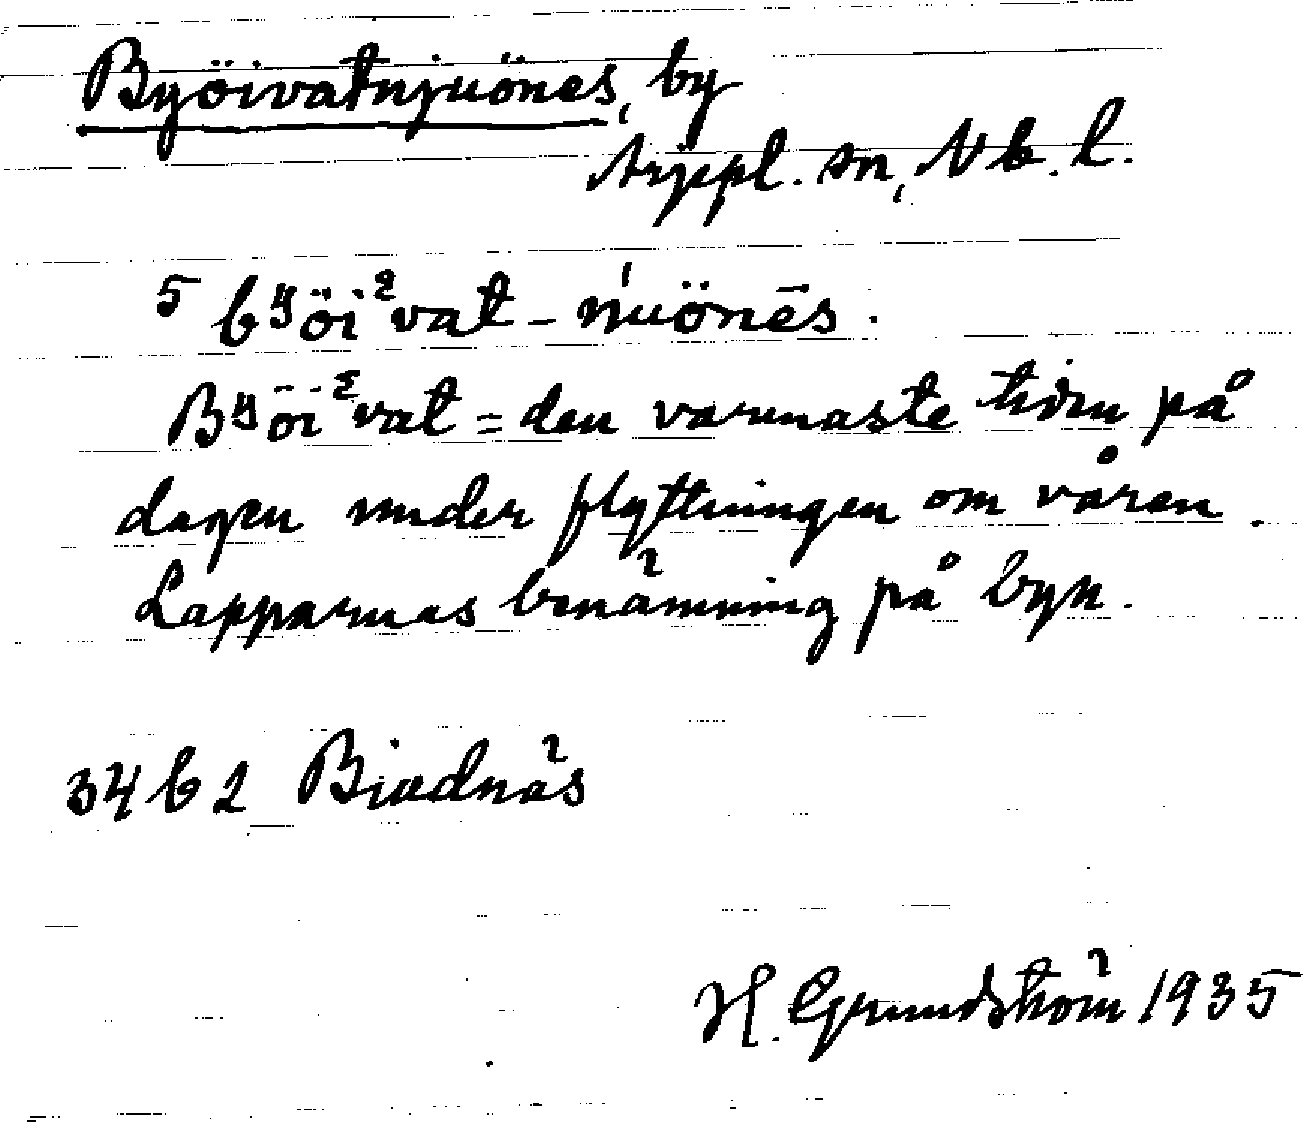 Byöivatnjuönes, by
Arjepl. sn, Nb. l.
5 bʸöi²vat-ńuönēs.
Bʸöi²vat = den varmaste tiden på
dagen under flyttningen om våren.
Lapparnas benämning på byn.
34 b 2 Biadnäs
H. Grundström 1935